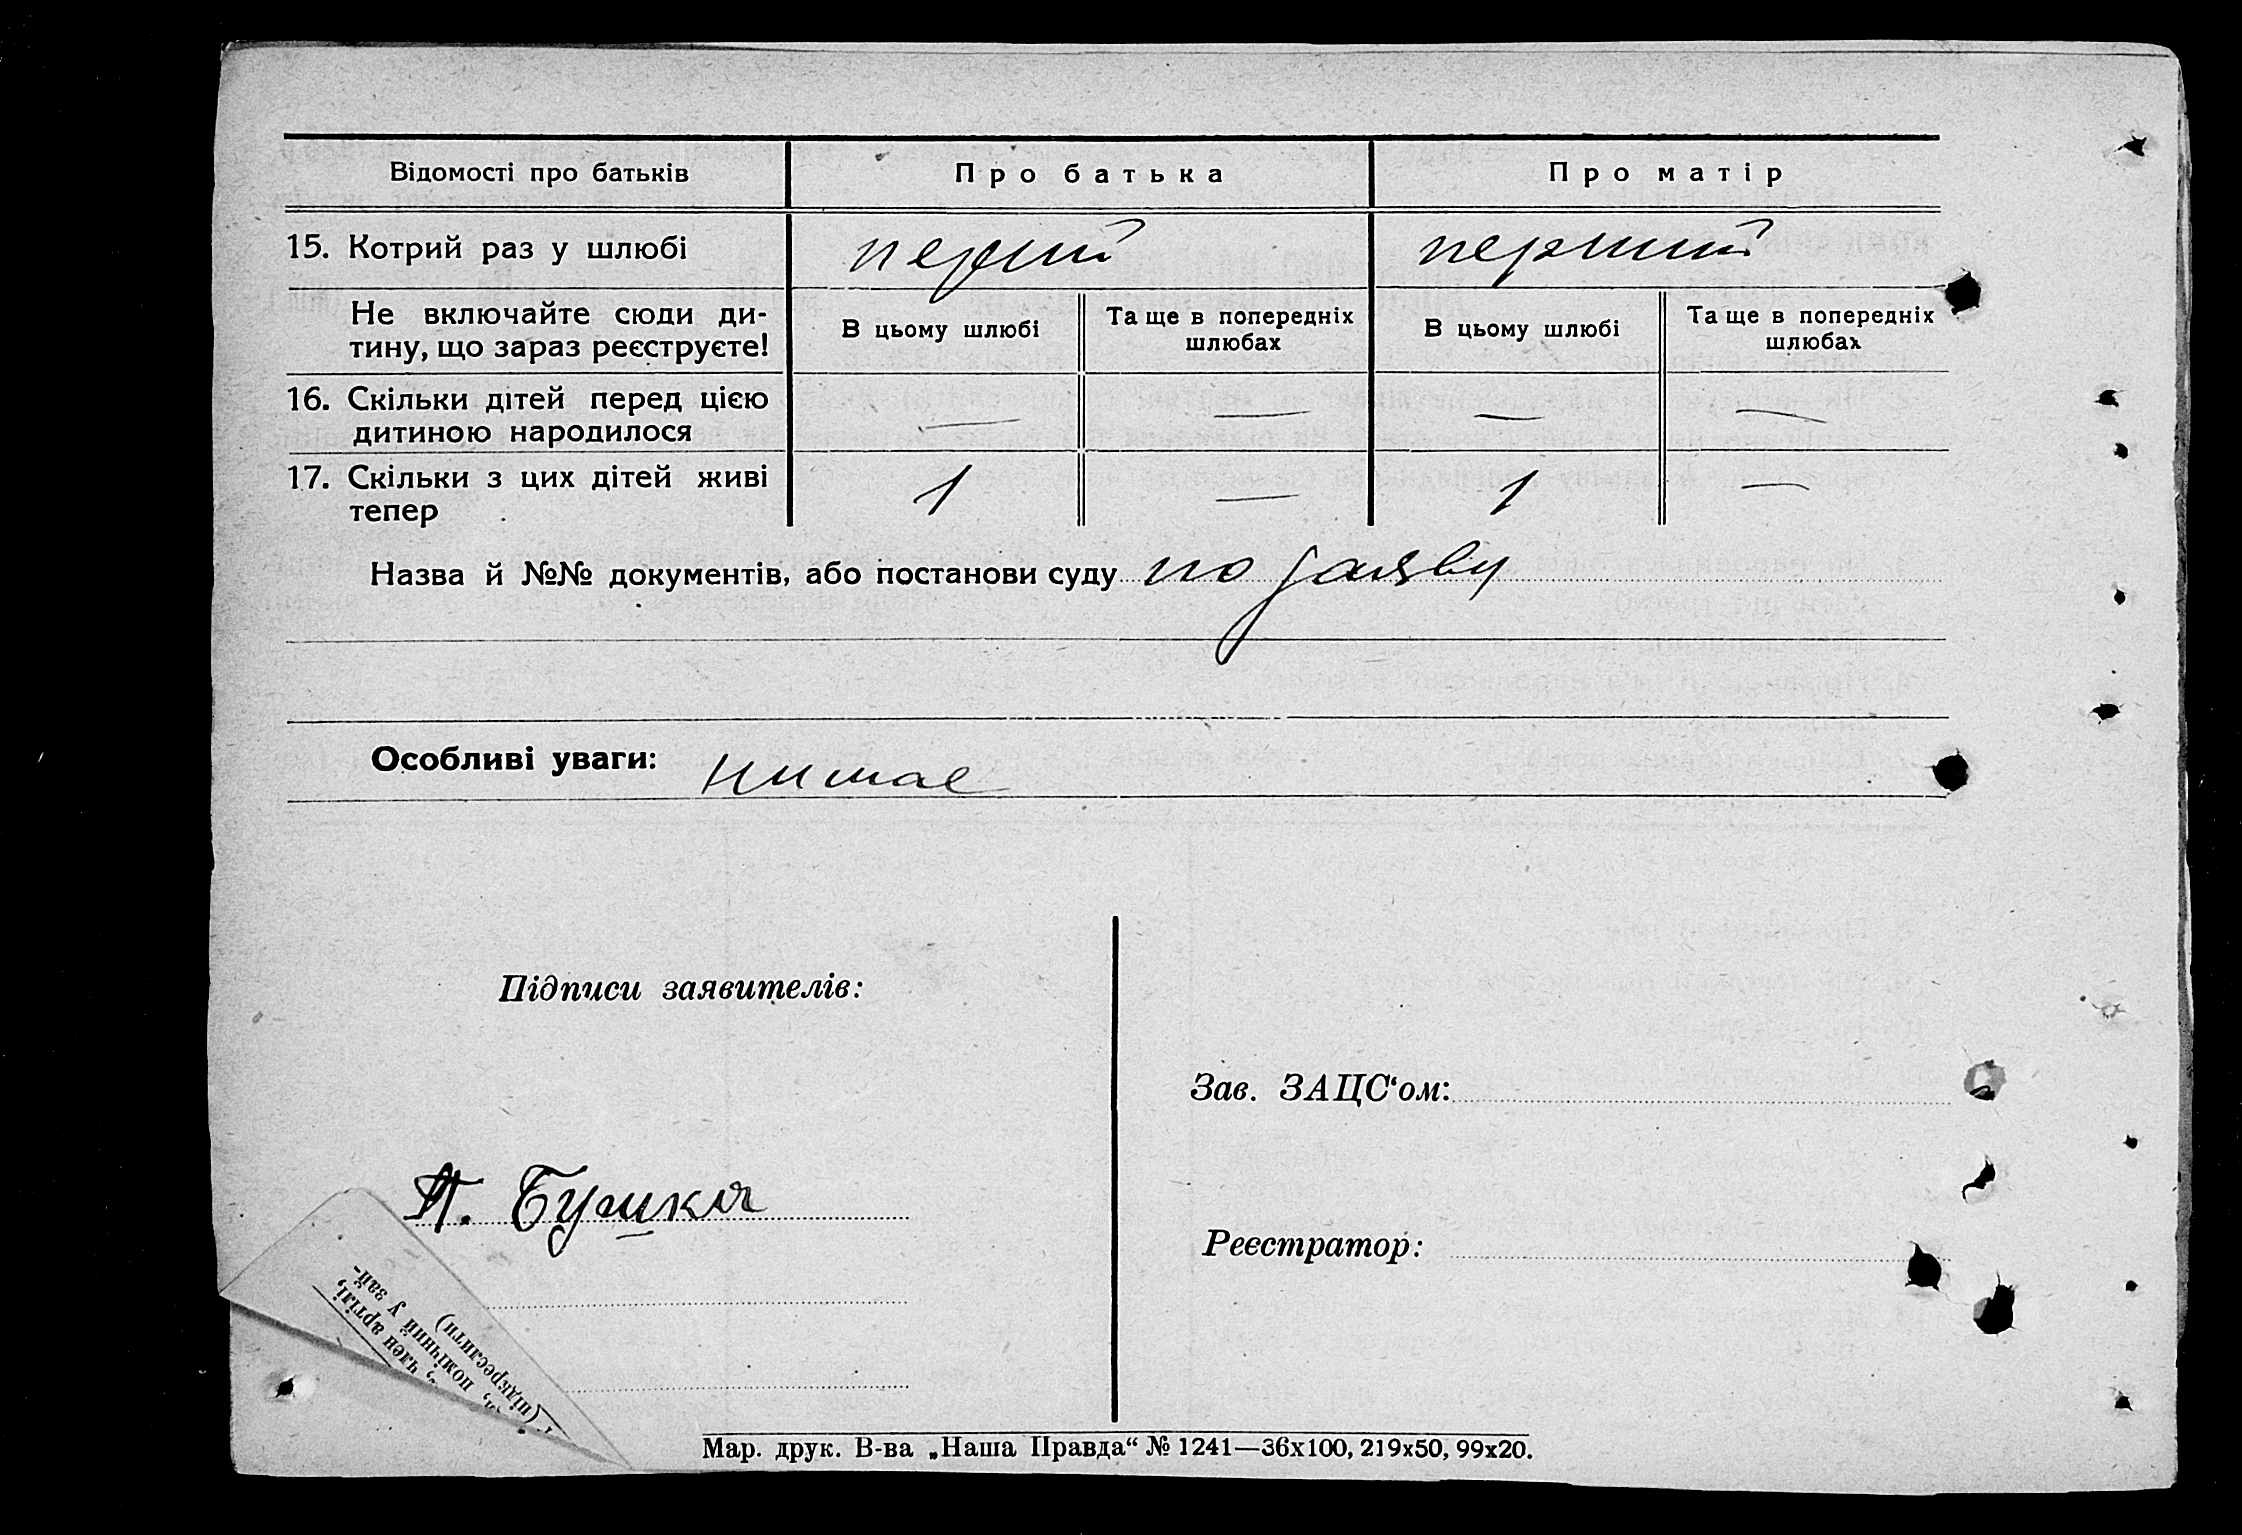 Відомості про батьків Про батька Про матір
15. Котрий раз у шлюбі перший перший
Не включайте сюди ди-
тину, що зараз реєструєте!
В цьому шлюбі Та ще в попередніх шлюбах В цьому шлюбі Та ще в попередніх шлюбах
16. Скільки дітей перед цією
дитиною народилося — — — —
17. Скільки з цих дітей живі
тепер 1 — 1 —
Назва й №№ документів, або постанови суду по заяву
Особливі уваги: нимає
Підписи заявителів:
Зав. ЗАЦС‘ом:
П. Бушка
Реєстратор:
(підкреслити)
помічний у зай-
член артілі,
Мар. друк. В-ва „Наша Правда“ № 1241—36x100, 219x50, 99x20.